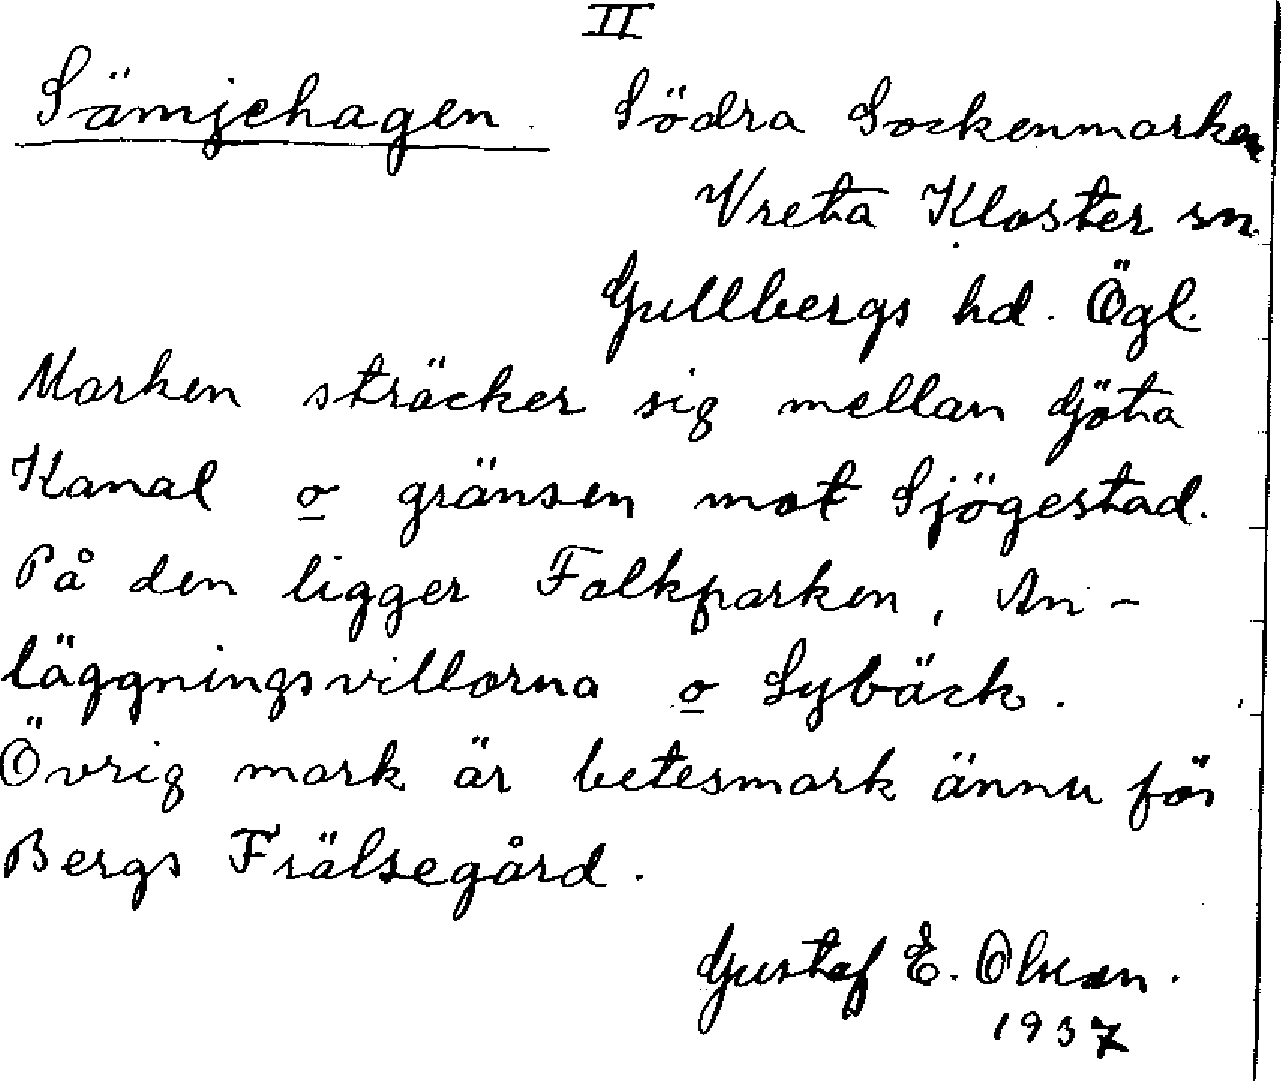 II
Sämjehagen. Södra Sockenmarken
Vreta Kloster sn.
Gullbergs hd. Ögl.
Marken sträcker sig mellan Göta
Kanal o gränsen mot Sjögestad.
På den ligger Folkparken, An-
läggningsvillorna o Lybäck.
Övrig mark är betesmark ännu för
Bergs Frälsegård.
Gustaf E. Olson.
1937